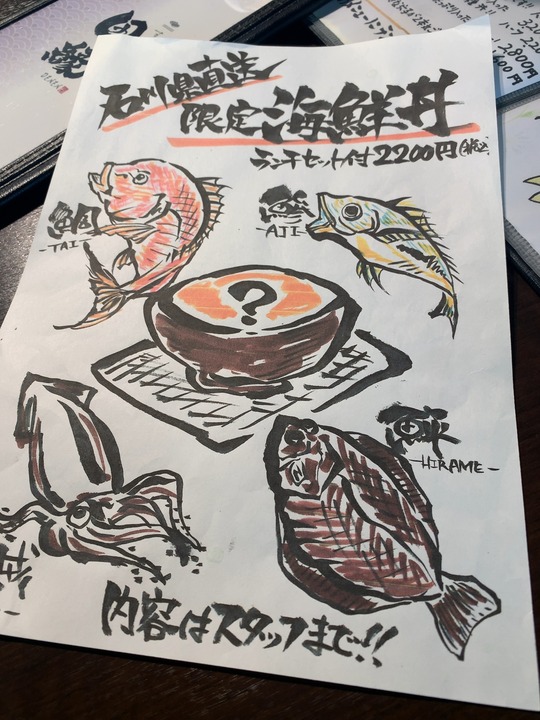 石川県直送
限定海鮮丼
ランチセット付2200円(税込)
鯛
-TAI-
鯵
-AJI-
?
-HIRAME-
内容はスタッフまで!!